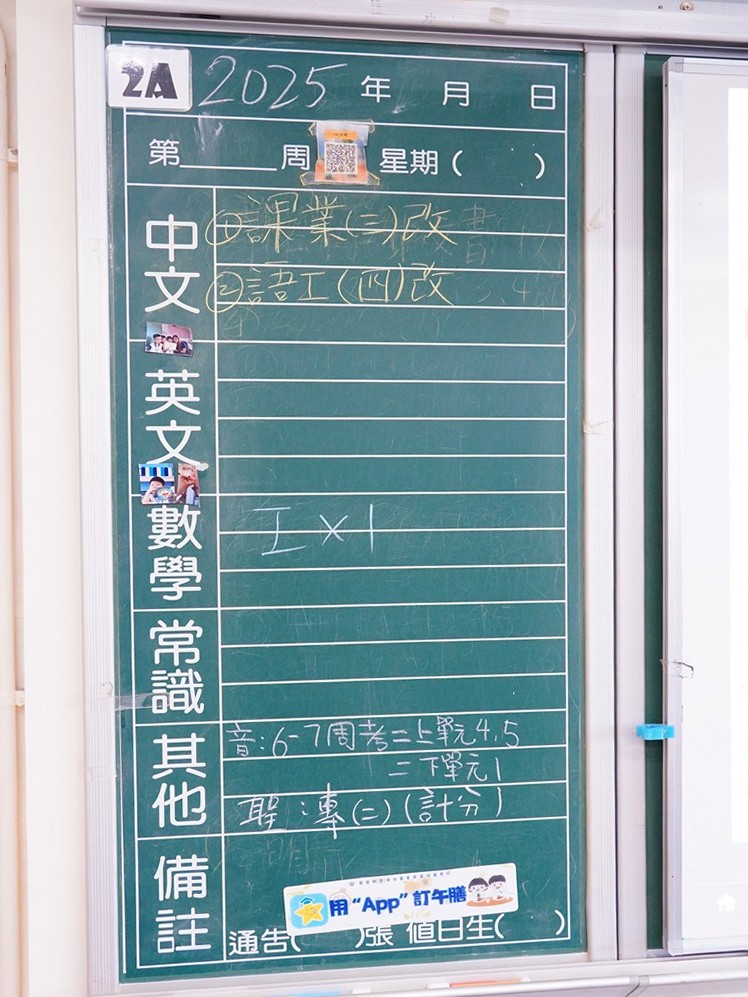 2A 2025 年 月 日
第 周 星期( )
中文
①課業(三)改
②語工(四)改
英文
數學
工×1
常識
其他
音:6-7周考二上單元4,5
二下單元1
聖:專(二)(計分)
備註
用“App”訂午膳
通告( )張 值日生( )